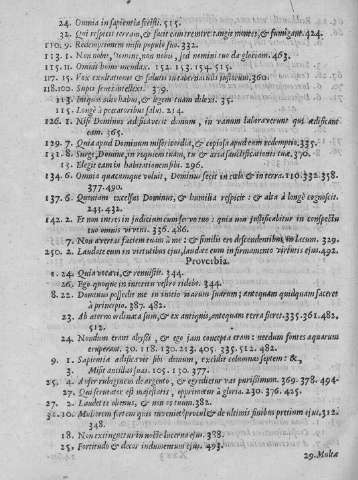 24. Omnia in sapientia fecisti. 515.
32. Qui respicit terram, & facit eam tremere: tangit montes, & fumigant. 424.
110. 9. Redemptionem misit populo suo. 332.
113. 1. Non nobis, Domine, non nobis, sed nomini tuo da gloriam. 463.
115. 11. Omnis homo mendax. 152. 153. 154. 515.
117. 15. Vox exultationis & salutis in tabernaculis justorum. 360.
118. 100. Super senes intellexi. 379.
113. Iniquos odio habui, & legem tuam dilexi. 35.
115. Longè à peccatoribus salus. 214.
126. 1. Nisi Dominus ædificaverit domum, in vanum laboraverunt qui ædificant
eam. 365.
129. 7. Quia apud Dominum misericordia, & copiosa apud eum redemptio. 335.
131. 8. Surge, Domine, in requiem tuam, tu & arca sanctificationis tuæ. 370.
13. Elegit eam in habitationem sibi. 296.
134. 6. Omnia quæcumque voluit, Dominus fecit in cœlo & in terra. 110. 332. 358.
377. 490.
137. 6. Quoniam excelsus Dominus, & humilia respicit: & alta à longè cognoscit.
243. 432.
142. 2. Et non intres in judicium cum servo tuo: quia non justificabitur in conspectu
tuo omnis vivens. 336. 486.
7. Non avertas faciem tuam à me: & similis ero descendentibus in lacum. 329.
150. 2. Laudate eum in virtutibus ejus, laudate eum in firmamento virtutis ejus. 492.
Proverbia.
1. 24. Quia vocavi, & renuistis. 344.
26. Ego quoque in interitu vestro ridebo. 344.
8. 22. Dominus possedit me in initio viarum suarum; antequam quidquam faceret
à principio. 387. 482.
23. Ab æterno ordinata sum, & ex antiquis, antequam terra fieret. 335. 361. 482.
512.
24. Nondum erant abyssi, & ego jam concepta eram: necdum fontes aquarum
eruperant. 30. 118. 130. 213. 405. 335. 512. 482.
9. 1. Sapientia ædificavit sibi domum, excidit columnas septem: &c,
3. Misit ancillas suas. 105. 130. 377.
25. 4. Aufer rubiginem de argento, & egredietur vas purissimum. 369. 378. 494.
27. Qui scrutator est majestatis, opprimetur à gloria. 230. 376. 425.
27. 2. Laudet te alienus, & non os tuum. 382.
31. 10. Mulierem fortem quis inveniet? procul & de ultimis finibus pretium ejus. 312.
348.
18. Non extinguetur in nocte lucerna ejus. 388.
25. Fortitudo & decor indumentum ejus. 493.
29. Multæ